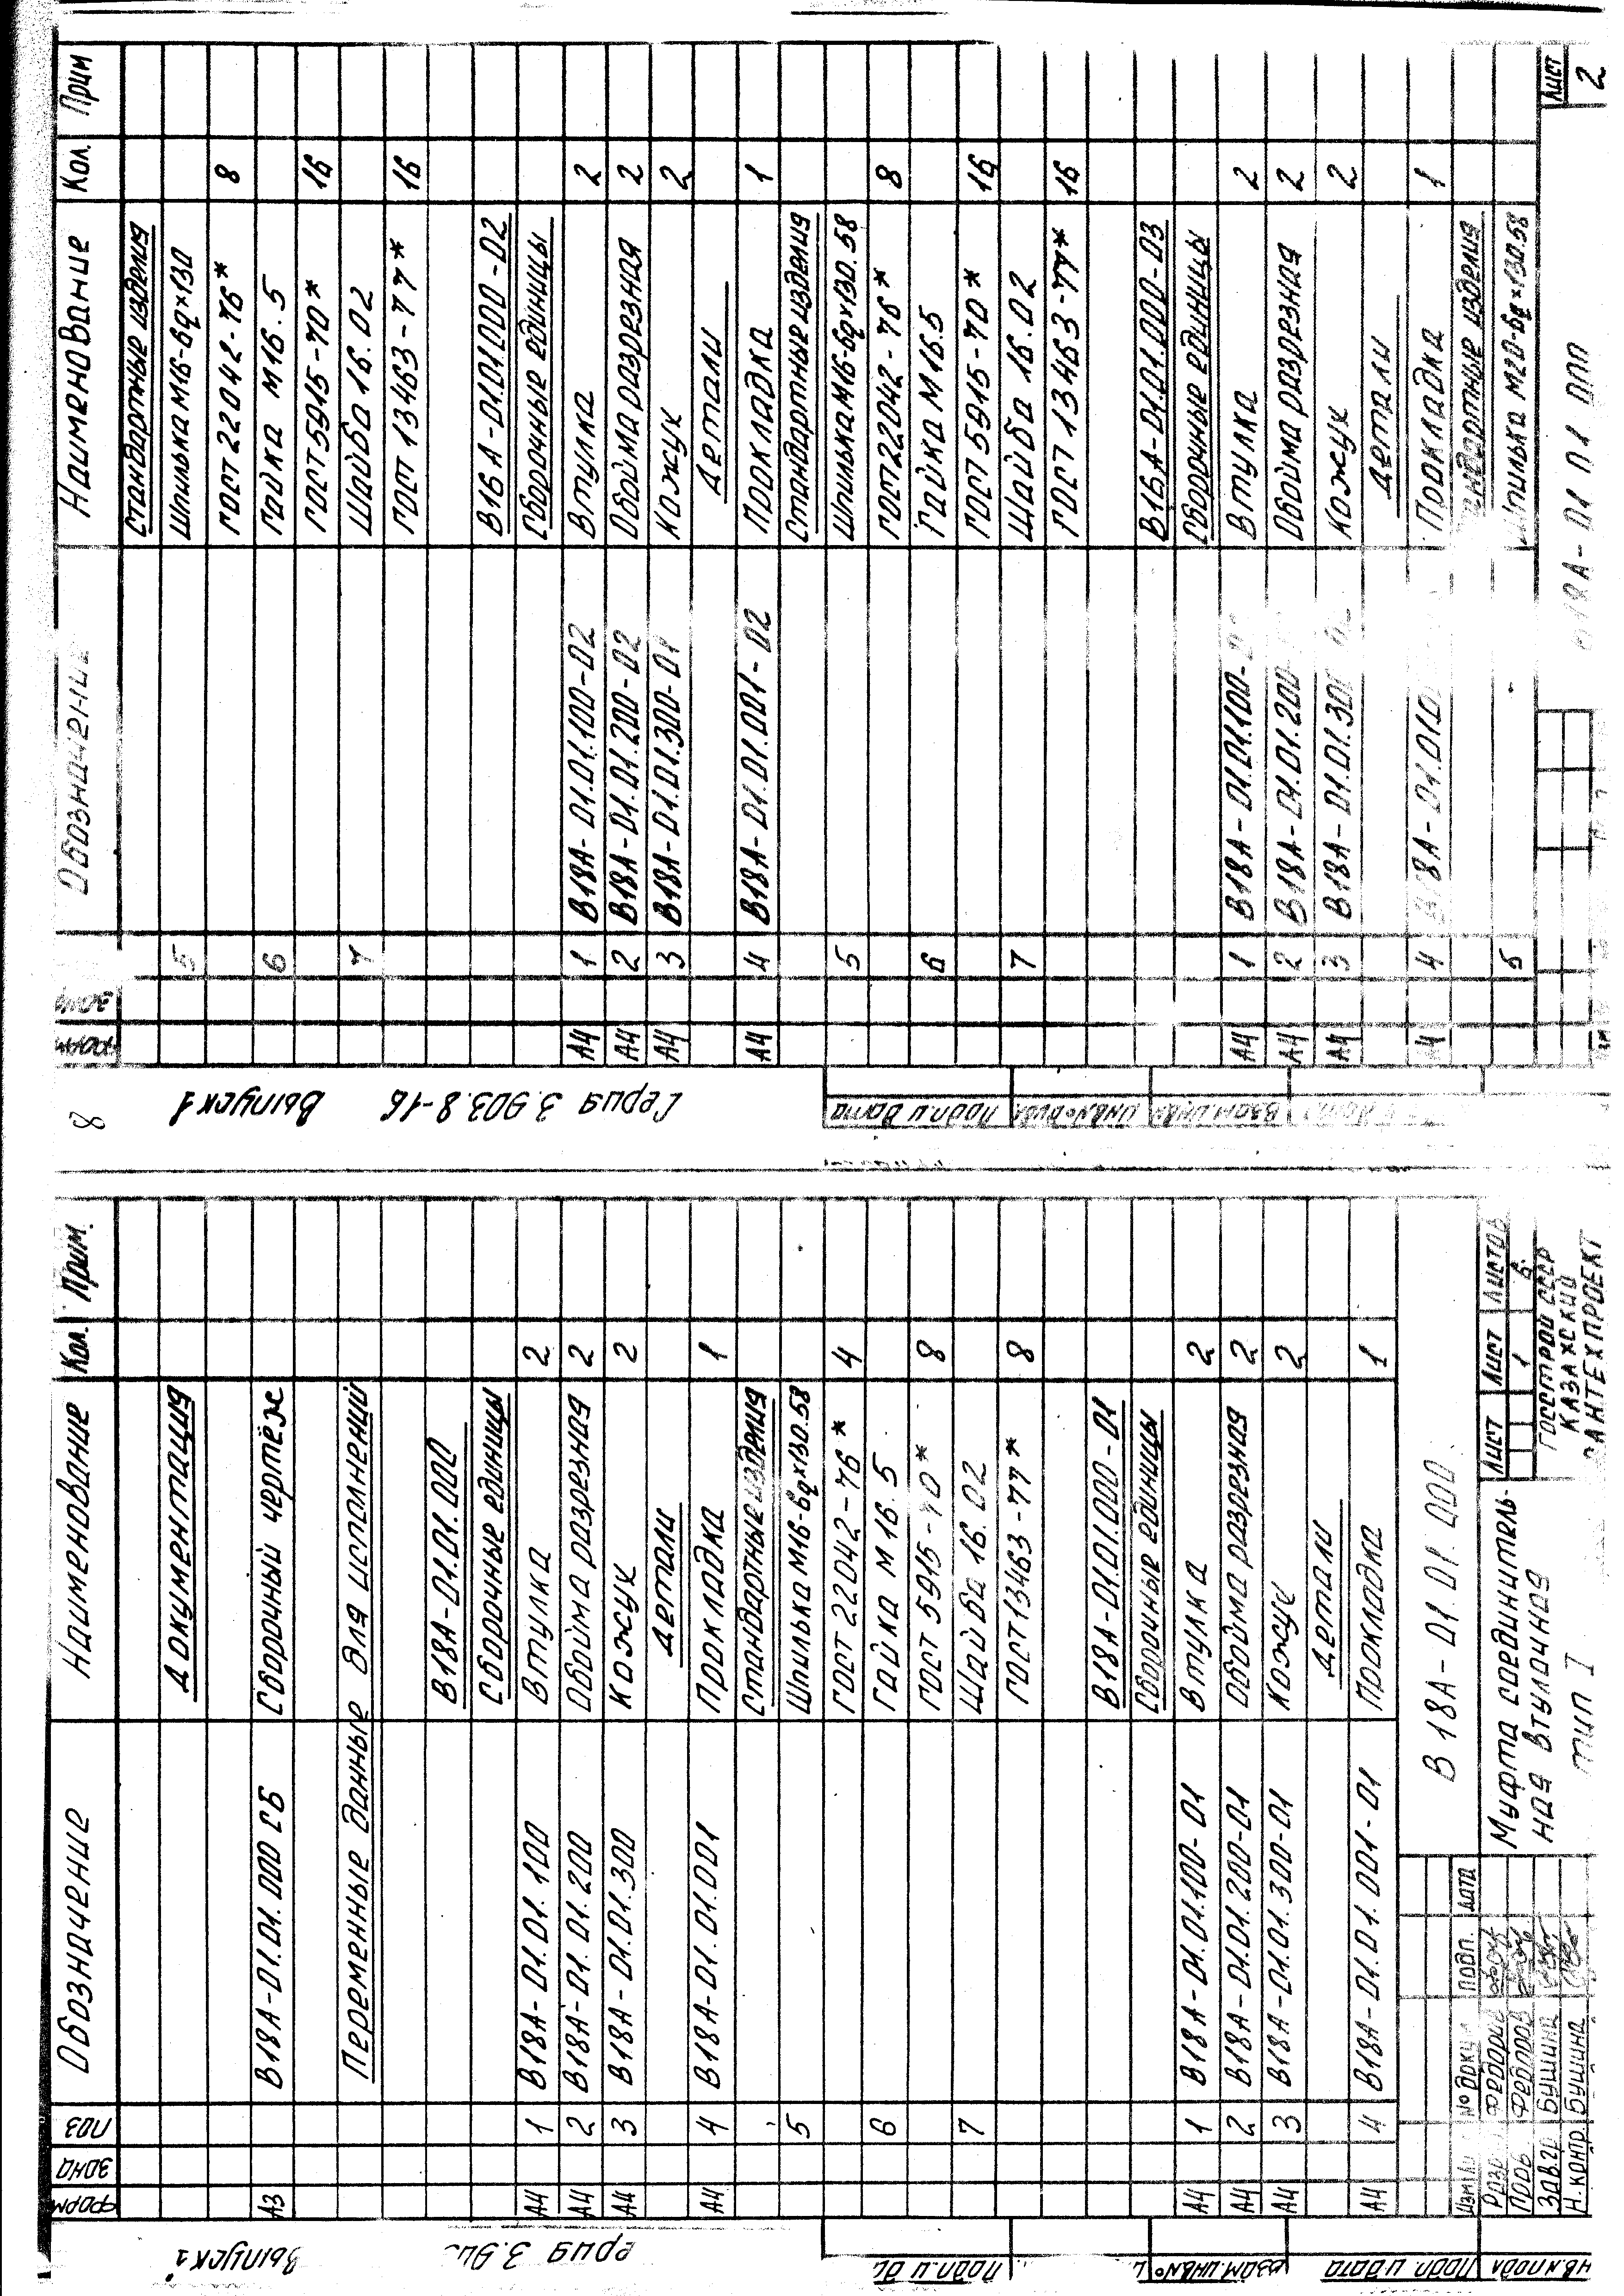 Выпуск 1
Форм Зона Поз Обозначение Наименование Кол. Прим.
Документация
А3 В18А-01.01.000 СБ Сборочный чертёж
Переменные данные для исполнений
В18А-01.01.000
Сборочные единицы
А4 1 В18А-01.01.100 Втулка 2
А4 2 В18А-01.01.200 Обойма разрезная 2
А4 3 В18А-01.01.300 Кожух 2
Детали
А4 4 В18А-01.01.001 Прокладка 1
Стандартные изделия
5 Шпилька М16-6g×130.58
ГОСТ 22042-76* 4
6 Гайка М16.5
ГОСТ 5915-70* 8
7 Шайба 16.02
ГОСТ 13463-77* 8
В18А-01.01.000-01
Сборочные единицы
А4 1 В18А-01.01.100-01 Втулка 2
А4 2 В18А-01.01.200-01 Обойма разрезная 2
А4 3 В18А-01.01.300-01 Кожух 2
Детали
А4 4 В18А-01.01.001-01 Прокладка 1
В18А-01.01.000
№ докум Подп. Дата
Муфта соединитель-
ная втулочная
тип I
Лист Лист Листов
1 6
Госстрой СССР
Казахский
Сантехпроект
Зав.гр Бушина
Н.контр. Бушина
Взам.инв№
Подп. и дата
8
Выпуск 1
Серия 3.903.8-16
Обозначение Наименование Кол. Прим
Стандартные изделия
5 Шпилька М16-6g×130
ГОСТ 22042-76* 8
6 Гайка М16.5
ГОСТ 5915-70* 16
7 Шайба 16.02
ГОСТ 13463-77* 16
В16А-01.01.000-02
Сборочные единицы
А4 1 В18А-01.01.100-02 Втулка 2
А4 2 В18А-01.01.200-02 Обойма разрезная 2
А4 3 В18А-01.01.300-01 Кожух 2
Детали
А4 4 В18А-01.01.001-02 Прокладка 1
Стандартные изделия
5 Шпилька М16-6g×130.58
ГОСТ 22042-76* 8
6 Гайка М16.5
ГОСТ 5915-70* 16
7 Шайба 16.02
ГОСТ 13463-77* 16
В16А-01.01.000-03
Сборочные единицы
А4 1 В18А-01.01.100- Втулка 2
А4 2 В18А-01.01.200 Обойма разрезная 2
А4 3 В18А-01.01.300 Кожух 2
Детали
4 Прокладка 1
изделия
5 Шпилька М20-6g×130.58
Подп. и дата
Лист
2